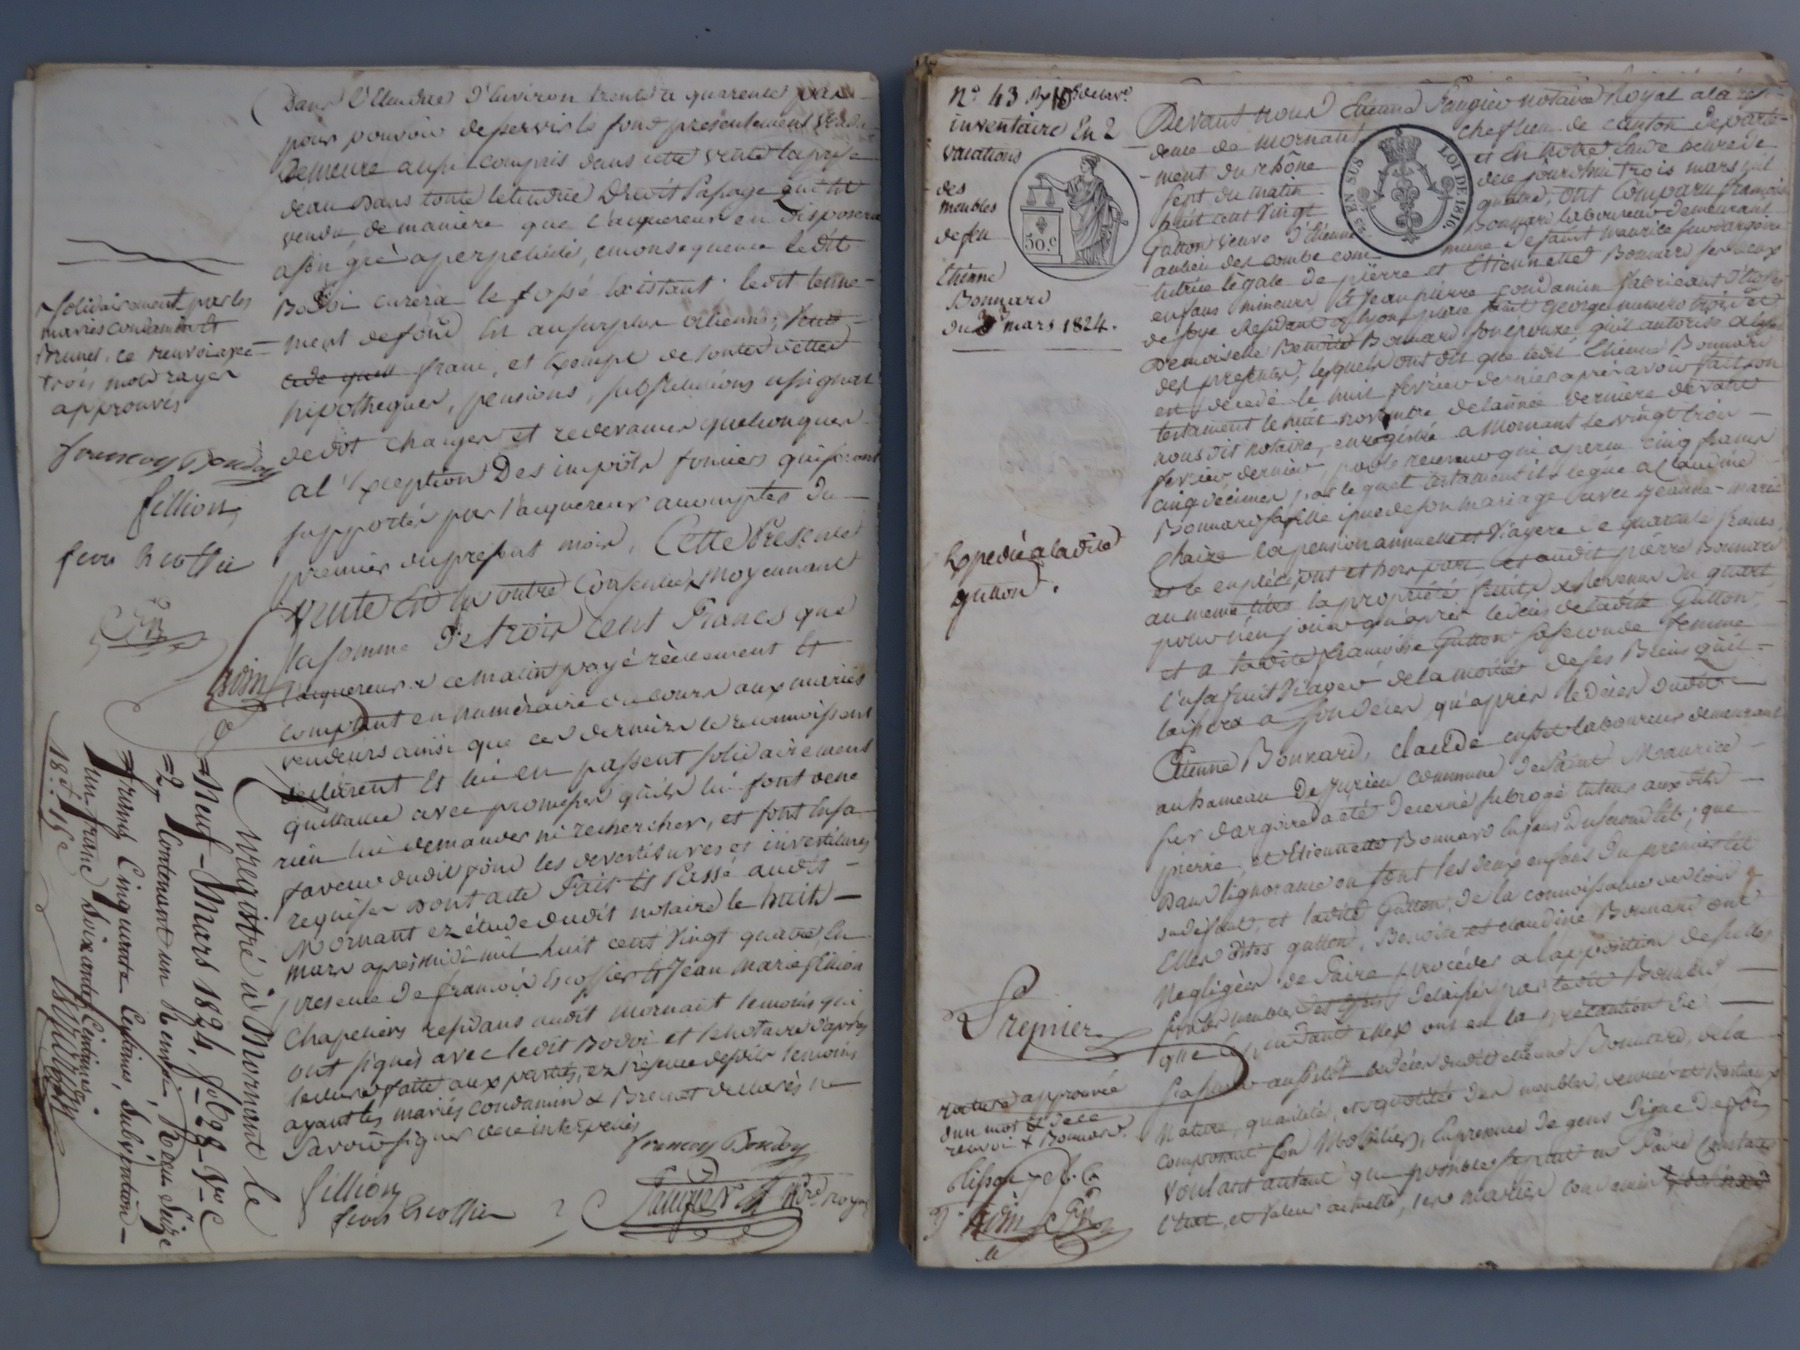 Dans l'étendue d'environ trente a quarente pas
pour pouvoir desservir le fond presentement vendu
Demeure aussi compris dans cette vente la prise
deau dans toute letendue Droit Passage quil lui
vendu de maniere que l'acquereur en disposera
a son gré a perpetuité, en consequence ledit
Bodoi curera le fossé Existant ledit tenne-
ment de fond Est au surplus
cede quit franc, et Exempt de toutes dettes
hipotheques, pensions, substitutions assignat
de dot charges et redevances quelconques
a l'Exception Des impots fonciers qui seront
supportés par l'acquereur a compter du
premier du present mois, Cette Presente
vente Est en outre Consentie Moyennant
la somme De trois Cent Francs que
l'acquereur a ce matin payé réelement Et
Comptant en numèraire au cours aux mariés
vendeurs ainsi que ces derniers le reconnoissent
declarent Et lui en passent solidairement
quittance avec promesse qu'ils lui font de ne
rien lui demander ni rechercher, et font en sa
faveur dudit fond les devestitures et investitures
requises Dont acte Fait Et Passé audit
Mornant ez étude dudit notaire le huit
mars après midi mil huit cent Vingt quatre En
presence de francois Escoffier Et Jean Marie fillion
Chapeliers residans audit mornant temoins qui
ont signés avec ledit Bodoi et le notaire d'après
lecture faite aux parties, ez presence desdits temoins
ayant les mariés Condamin & Brunet declarés ne
Savoir signer de ce interpellés
francoy Boudoy
fillion
fcois Escoffier
Nre royal
solidairement par les
mariés condamin Et
Brunet. ce renvoi avec
trois mots rayés
approuvés
francoy Boudoy
fillion
fcois Escoffier
Enregistré à Mornant le
Neuf Mars 1824, fo 698 Vo C
2, Contenant un Renvoi, Recu Seize
francs Cinquante Centimes, Subvention
un franc Soixante Cinq Centimes.
no 43
inventaire En 2
vacations
des
meubles
de feu
Etienne
Bonnard
du 3 mars 1824.
Expedié a la dite
gutton.
Devant nous Etienne Fougier notaire Royal a la res-
dence de Mornant chef lieu de canton departe-
ment du rhône et En notre Etude heure de
sept du matin de ce jourdhui trois mars mil
huit cent Vingt quatre, ont Comparu francoise
Gutton Veuve d'Etienne Bonnard laboureur demeurant
au lieu des combe commune de saint Maurice sur dargoire
tutrice légale de pierre et Etiennette Bonnard ses deux
enfans mineurs, Et Jean pierre condamin fabricant d'Etoffes
de soye Residant a lyon place saint George numero trois et
Demoiselle Benoite Bonnard son epouse quil autorise a l'effet
des presentes, lesquels ont dit que ledit Etienne Bonnard
est décedé le huit fevrier dernier apres avoir fait son
testament le huit novembre de lannée derniere devant
nous dit notaire, enregistré a Mornant le vingt trois
fevrier dernier, par le receveur qui a percu cinq francs
cinq decimes, par le quel testament il legue a Claudine
Bonnard sa fille issue de son mariage avec Jeanne-Marie
Chaize la pension annuelle et Viagere de quarente francs
et ce en préciput et hors part et audit pierre Bonnard
au meme titre la propriété fruits & Revenus du quart
pour n'en jouir qu'après le deces de ladite Gutton,
et a ladite francoise Gutton sa seconde femme
l'usufruit Viager de la moitié de ses Biens qu'il
laissera a son deces qu'après le deces dudit
Etienne Bonnard, claude laboureur demeurant
au hameau De Jurieu commune de Saint Maurice
sur dargoire a été decerné subrogé tuteur aux dits
pierre, et Etiennette Bonnard Enfans du second lit; que
Dans lignorance ou sont les deux enfans du premier lit
sudefunt, et ladite Gutton, de la connoissance des loix
Elles dites gutton, Benoite et claudine Bonnard ont
Negligées de Faire procéder a lapposition de scellés
sur les meubles delaissés par ledit Bonnard
que cependant elles ont eu la précaution de
Premier
faire aussitôt le deces dudit etienne Bonnard, de la
Nature, quantité, et qualité des meubles, denrées et Bestiaux
composant son Mobilier, En presence de gens digne De foi
voulant autant que possible faire Constater
l'Etat, et Valeur actuelle, les mariés condamin
rature approuvée
d'un mot
renvoi & Bonnard.
EN SUS
LOI DE 1816
50. c